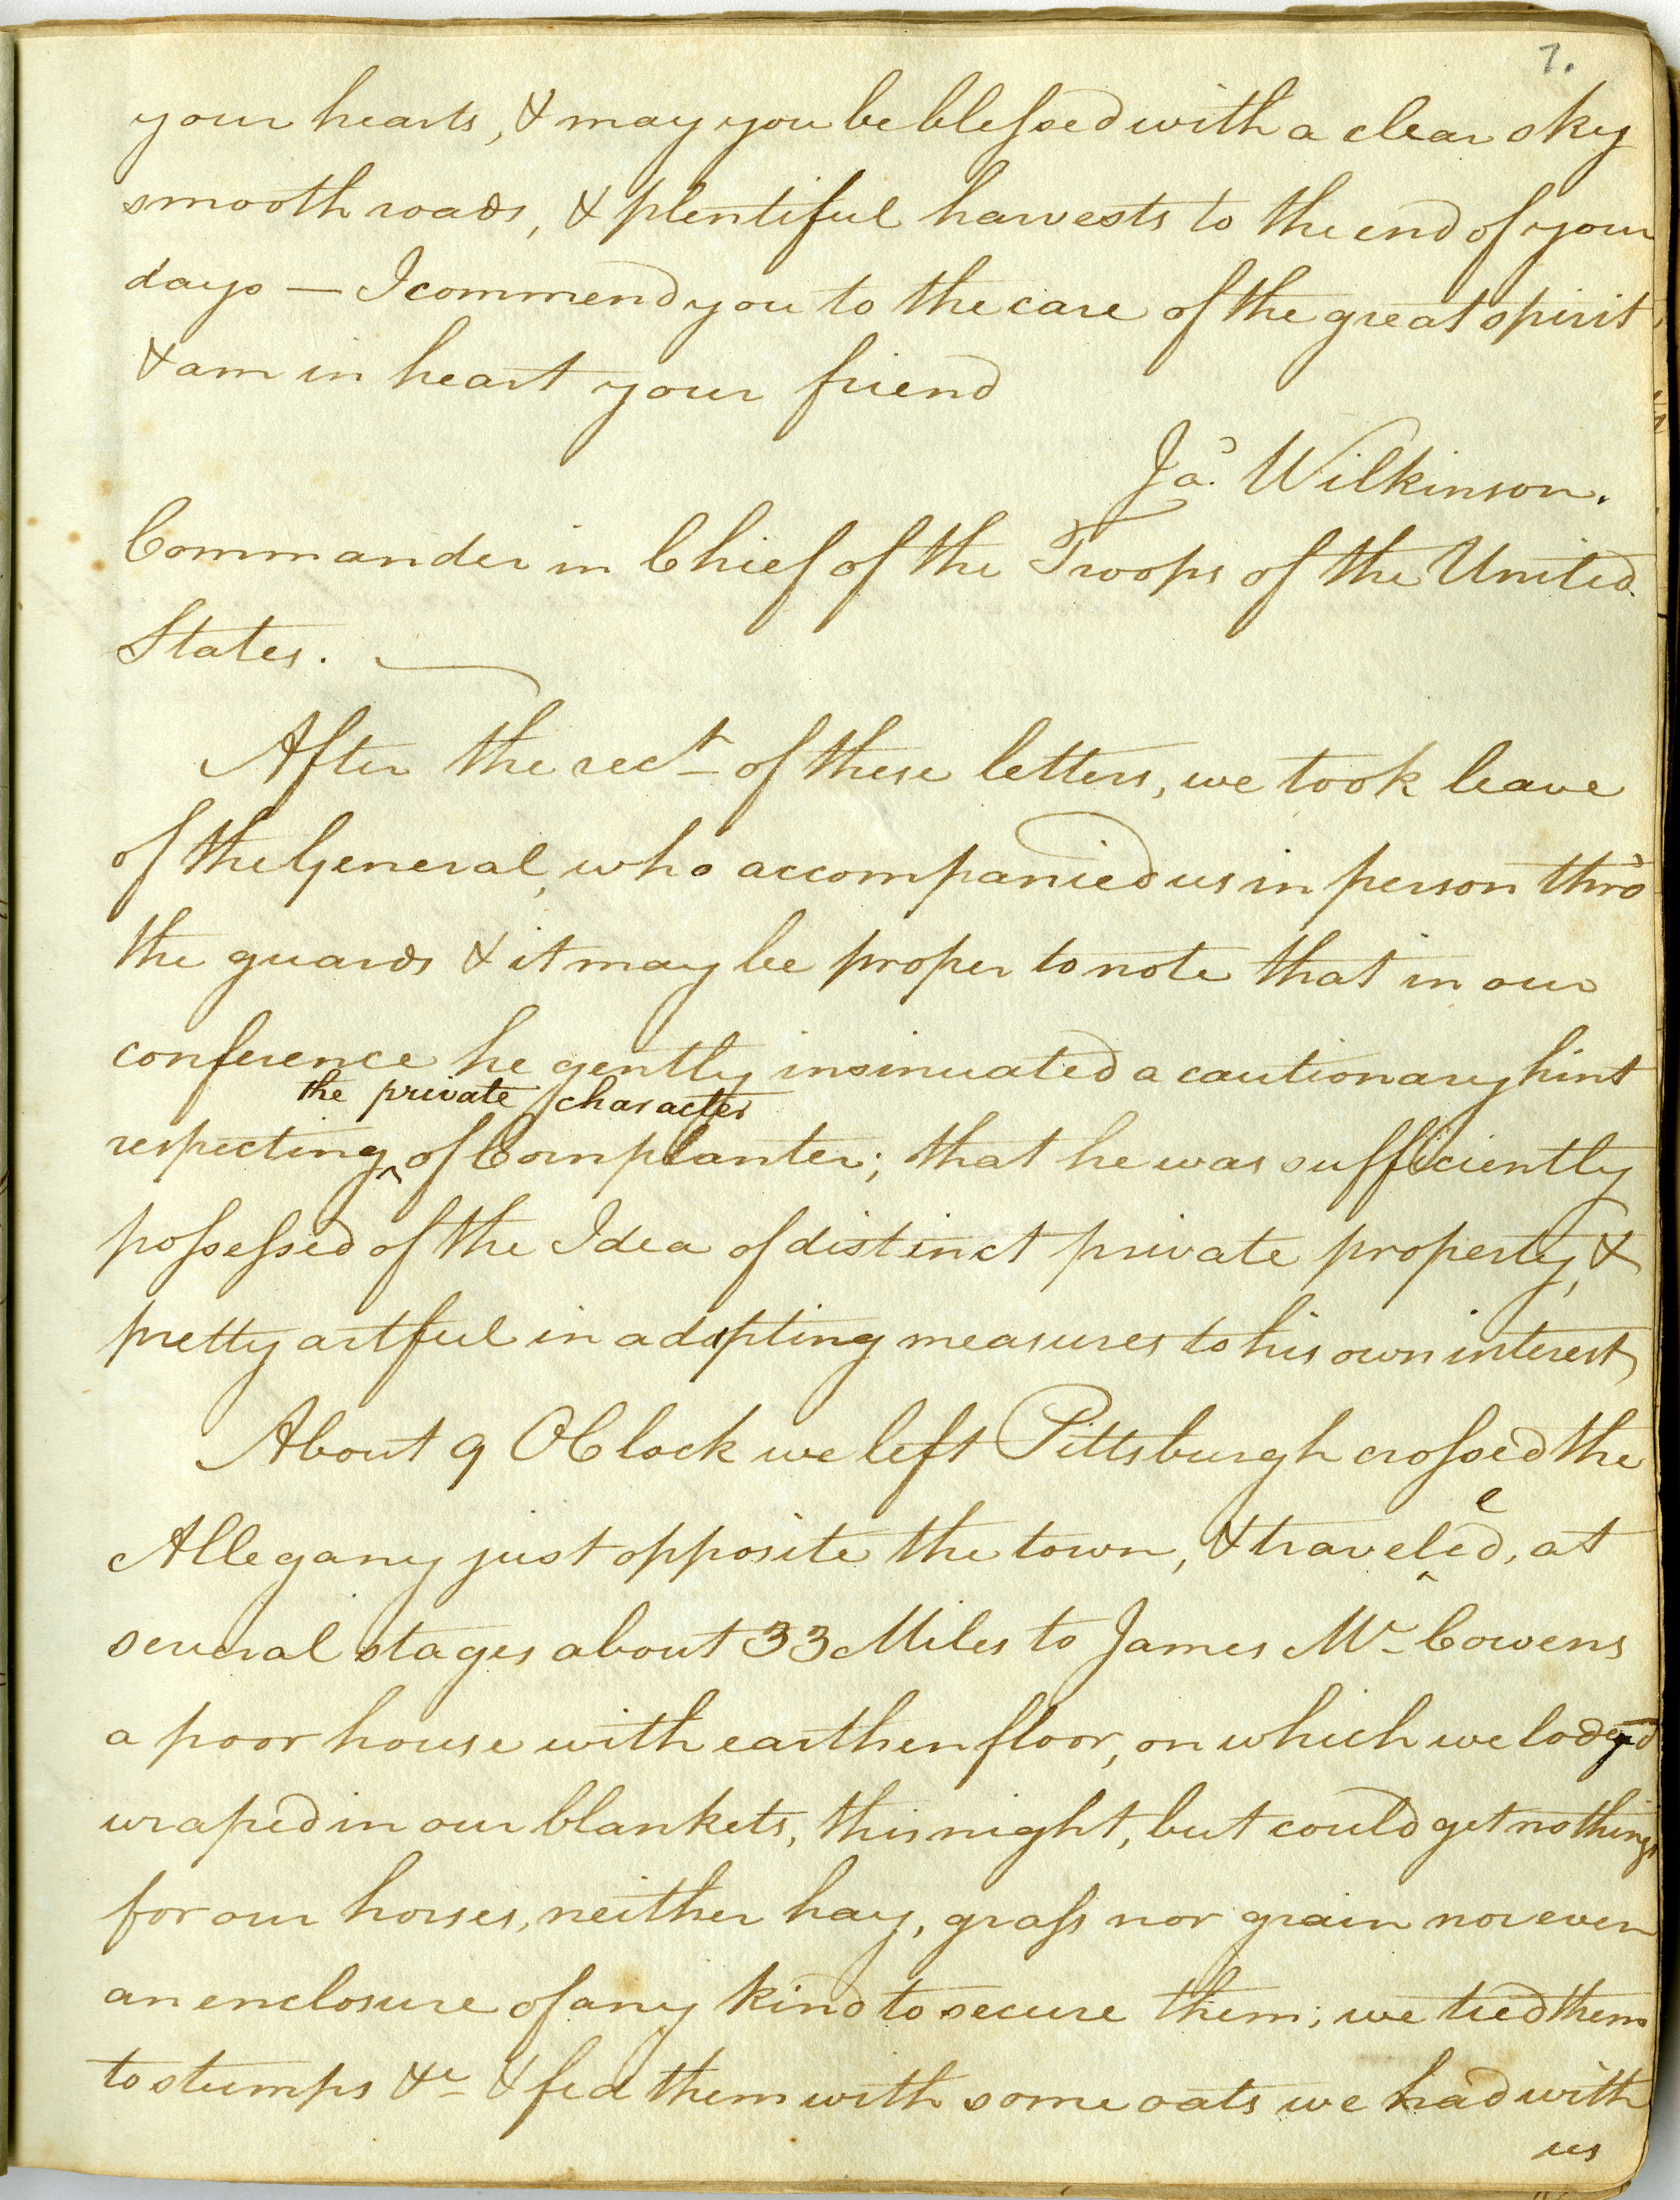 7.
your hearts, & may you be blessed with a clear sky
smooth roads, & plentiful harvests to the end of your
days — I commend you to the care of the great spirit
& am in heart your friend
Jas. Wilkinson.
Commander in Chief of the Troops of the United
States.
After the rect of these letters, we took leave
of the General, who accompanied us in person thro'
the guards & it may be proper to note that in our
conference he gently insinuated a cautionary hint
the private character
respecting ^ of Cornplanter; that he was sufficiently
possessed of the Idea of distinct private property, &
pretty artful in adopting measures to his own interest,
About 9 OClock we left Pittsburgh crossed the
Allegany just opposite the town, & traveled, at
several stages about 33 Miles to James Mc Cowens
a poor house with earthen floor, on which we lodged
wraped in our blankets, this night, but could get nothing
for our horses, neither hay, grass nor grain nor even
an enclosure of any kind to secure them; we tied them
to stumps &c & fed them with some oats we had with
us